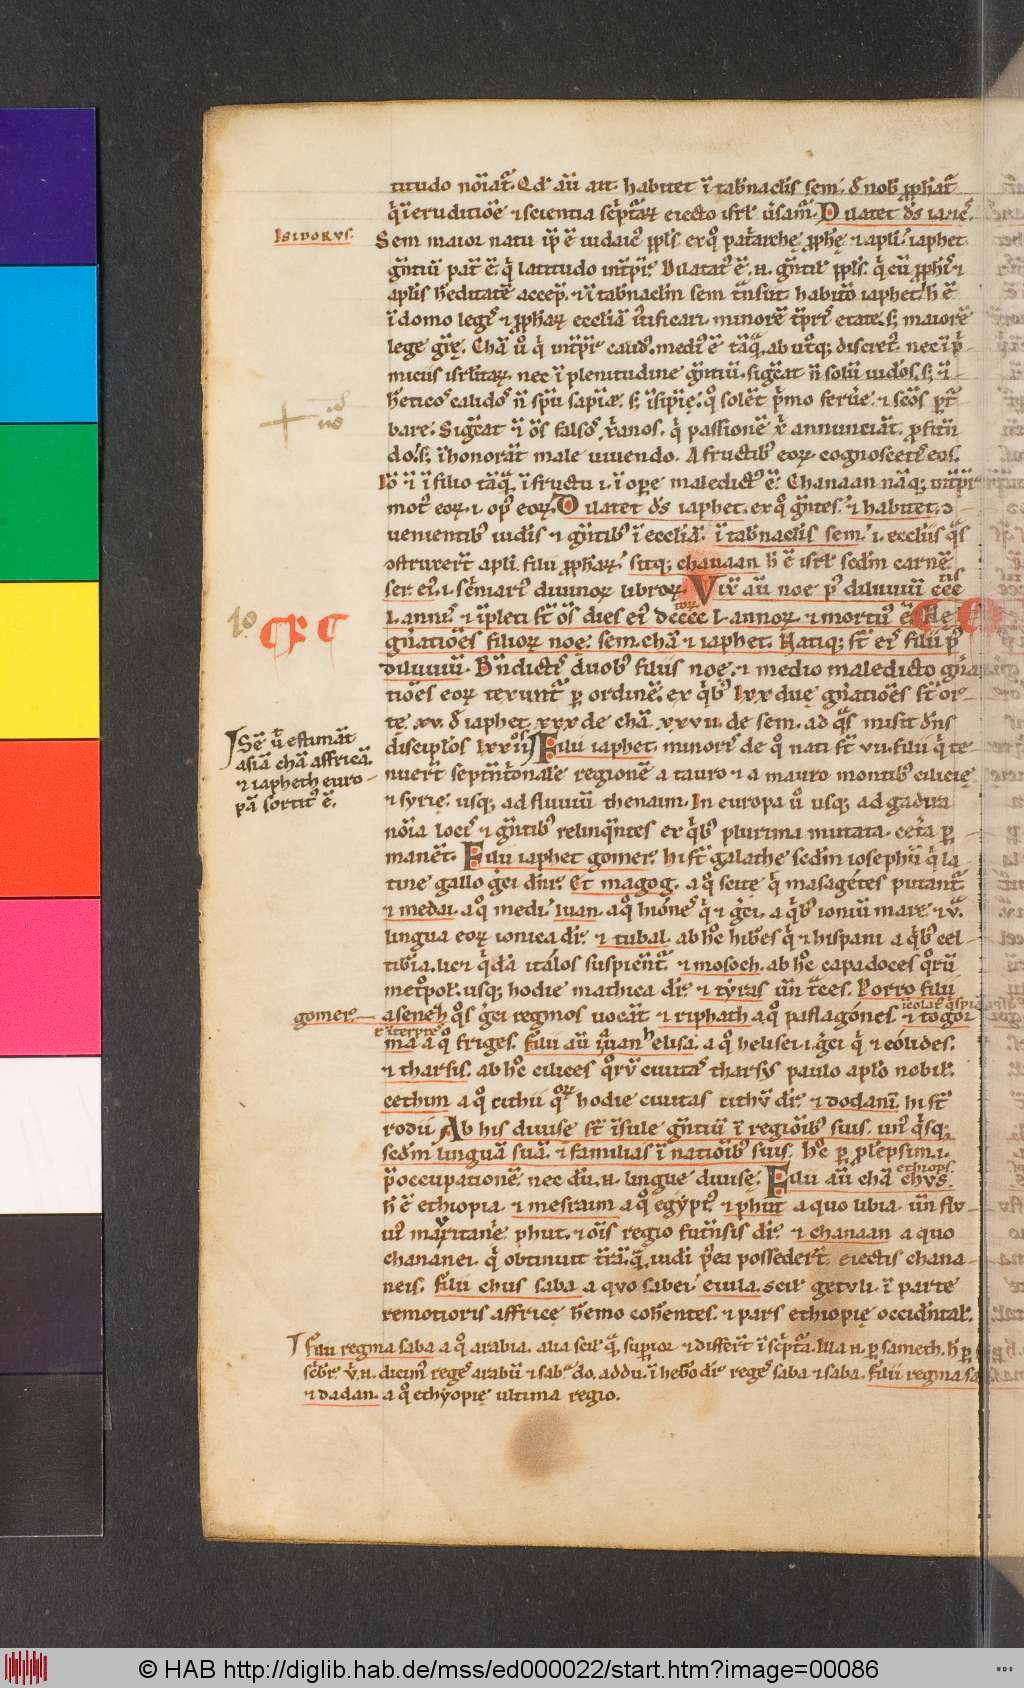 titudo noīat᷑. Qd̕ aū ait. habitet ī tab̕nac̄lis sem. d̕ nob̕ ꝓph̕at᷑
q̕ ī eruditiōe ⁊ scientia sc̕ptar̄ꝝ eiecto isrl̕ ūsam᷑. Dilatet ds̄ iafeth̕.
ISIDORVS.
Sem maior natu ip̄e ē iudaic᷒ ppl̕s. ex q̊ pat̕arche ꝓph̕e ⁊ apl̕i. iaphet
gn̄tiū pat̕ ē. q̕ latitudo int̕p̕r. Dilatat᷒ ē .n. gn̄tiū ppl̕s. q̕ cū ꝓph̕is ⁊
apl̕is h̕editatē accep. ⁊ ī tab̕nac̄lm sem t᷑nsiit. habito iaphet. h̕ ē
ī domo legis ⁊ ꝓph̕aꝝ eccl̕iā
lege gr̄e. Chā ū q̕ int̕p̕r calid᷒. medi᷒ ē tāq̄ ab ut᷑q; discret᷒. nec ī p̕
miciis isrl̕itaꝝ. nec ī plenitudine gn̄tiū. sigc̄at n̄ solū iudeos. s; ⁊
h̕eticos calidos n̄ sp̄u sapīe. s; īsipīe. q̊ solet p̕mo feru̕e. ⁊ scōs p̕t᷑
bare. Sigc̄at ⁊ oēs falsos xp̄ianos. q̕ passionē xp̄i annunciāt. ꝓfitēn
do. s; ī honorāt male uiuendo. A fructib᷒ eoꝝ cognoscetis eos.
Iō ⁊ ī filio tāq̄ ī fructu .i. ī op̄e maledict᷒ ē. Chanaan nāq; int̕p̕r
mot᷒ eoꝝ .i. op᷒ eoꝝ. Dilatet ds̄ iaphet. ex q̊ gn̄tes. ⁊ habitet. ɔ
uenientib᷒ iudeis ⁊ gn̄tib᷒ ī eccl̕iā. ī tab̕nac̄lis sem .i. eccl̕iis q̄s
ɔstruxer̄t apl̕i filii ꝓph̕aꝝ. sitq; chanaan h̕ ē isrl̕ sedm carnē
ser. ei᷒ .i. sēmari᷒ diuinoꝝ libroꝝ. Vix̄ aū noe p᷒ diluuiū ccc
.l. annis. ⁊ īpleti st̄ oēs dies ei᷒ dcccc l. annoꝝ. ⁊ mortu᷒ ē. He
10
gn̄atiōes filioꝝ noe. sem. chā ⁊ iaphet. Natiq; st̄ eis filii p᷒
diluuiū. Bn̄dictis duob᷒ filiis noe. ⁊ medio maledicto gn̄a
tiōes eoꝝ texunt᷑ p ordinē. ex q̕b᷒ lxx due gn̄atiōes st̄ or
te. xv. d̕ iaphet xxx de chā xxvii. de sem. ad q̄s misit dn̄s
disciplos lxxii. Filii iaphet. minoris de q̊ nati st̄ vii. filii q̕ te
Sē ū estimāt
asiā chā affricā
⁊ iapheth euro
pā sortit᷒ ē.
nuer̄t septēt᷑onalē regionē a tauro ⁊ a mauro montib᷒ cilicie
⁊ syrie. usq; ad fluuiū thenaim. In europa ū usq; ad gadira
noīa locis ⁊ gn̄tib᷒ relinq̄ntes ex q̕b᷒ plurima mutata. cet̕a p
manēt. Filii iaphet gomer. hi st̄ galathe sedm iosephū q̕ la
tine gallo greci dn̄r. Et magog. a q̊ scite q̕ masagétes putant᷑.
⁊ medai. a q̊ medi. iuan. a q̊ hiónes q̕ ⁊ g̕ci. a q̕b᷒ ioniū mare. ⁊ ū.
lingua eoꝝ ionica dr̄. ⁊ tubal. ab hoc hib̕es q̕ ⁊ hispani a q̕b᷒ cel
tib̕ia. lic̕ ⁊ q̕dā itálos suspicēnt᷑. ⁊ mosoch. ab hoc capadoces q̊rū
met᷑pol̕. usq; hodie mathica dr̄. ⁊ tyras ūn t᷑ces. Porro filii
gomer.
asenech q̊s g̕ci reginos uocāt ⁊ riphath a q̊ paflagónes. ⁊ togor
ma a q̊ friges. filii aū iuan elisa. a q̊ helisei .i. g̕ci q̕ ⁊ eólides.
⁊ tharsis. ab hoc cilices q̊rū ciuitas tharsys paulo apl̕o nobil̕.
cethim a q̊ cithii q̊ꝝ hodie ciuitas cithū dr̄. ⁊ dodanī hi st̄
rodii Ab his diuise st̄ īsule gn̄tiū ī regiōib᷒ suis. un᷒ q̕sq;
sedm linguā suā. ⁊ familias ī natiōib᷒ suis. hoc p pl̕epsim .i.
p̄occupationē. nec dū .n. lingue diuise. Filii aū chā chvs.
ethiops.
h̕ ē ethiopia ⁊ mesraim a q̊ egypt᷒. ⁊ phut a quo libia. ūn flu
ui᷒ mauritanie. phut. ⁊ oīs regio futēnsis dr̄. ⁊ chanaan a quo
chananei. q̕ obtinuit t̕rā. q̄ iudi p᷒ea posseder̄t eiectis chana
neis. filii chus saba a qvo sabei. euila. scil̕ getuli ī parte
remotioris affrice h̕emo coh̕entes. ⁊ pars ethiopie occidn̄tal̕.
filii regma saba a q̊ arabia. alia scil̕ q̄ supior ⁊ differt ī sc̕pt᷑a. illa .n. p samech. h̕ p
sc̕br̄. ū .n. dicim᷒ reges arabū ⁊ sab̕ do. addu. ī heb̕o dr̄ reges saba ⁊ saba. filii regma sa
⁊ dadan. a q̊ ethyopie ultima regio.
© HAB http://diglib.hab.de/mss/ed000022/start.htm?image=00086